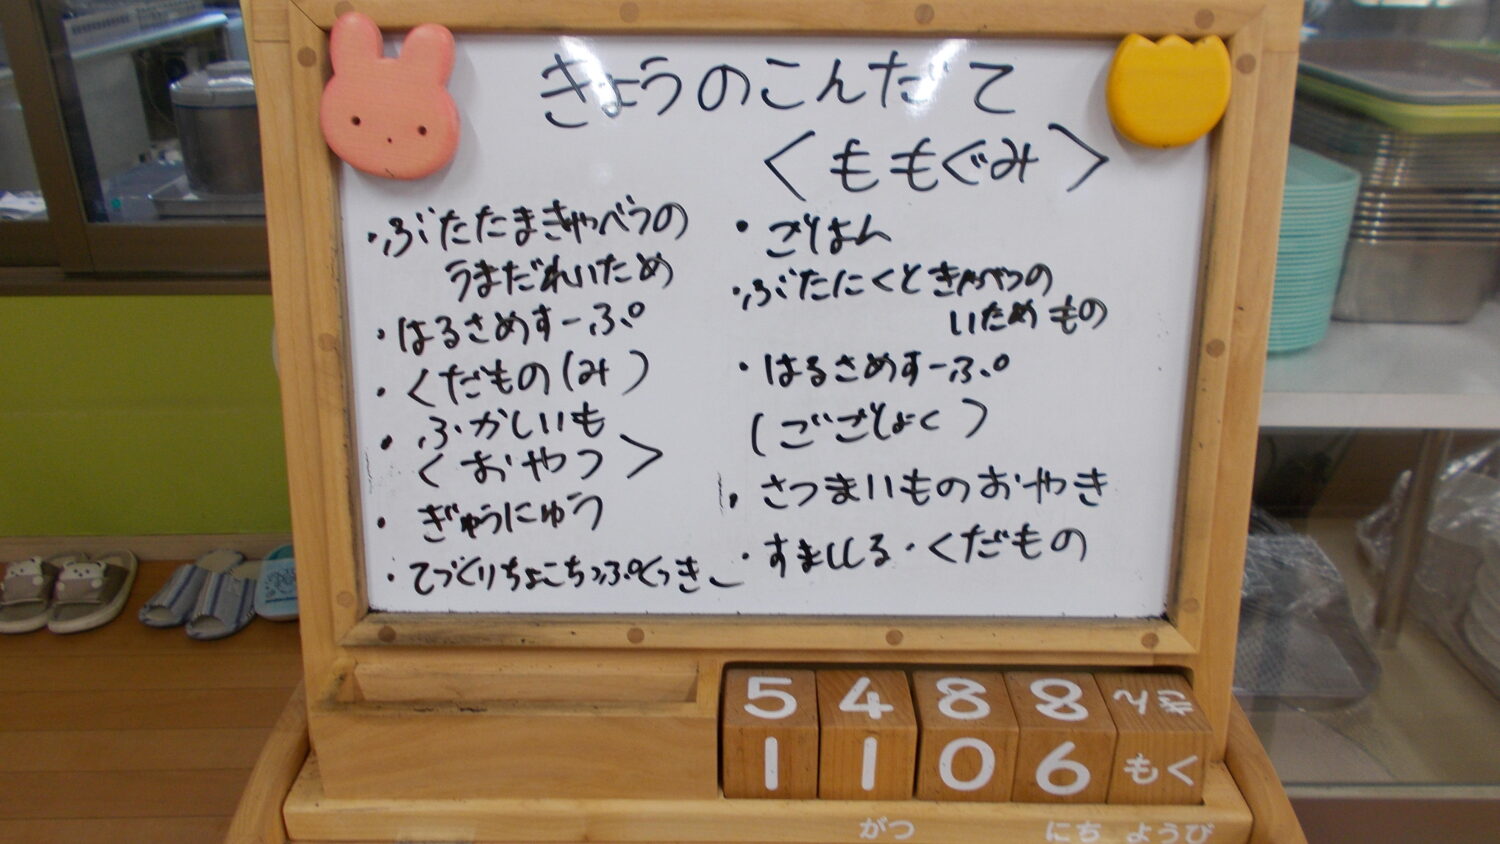 きょうのこんだて
＜ももぐみ＞
・ぶたたまきゃべつの
うまだれいため
・はるさめすーぷ
・くだもの（み）
・ふかしいも
＜おやつ＞
・ぎゅうにゅう
・てづくりちょこちっぷくっきー
・ごはん
・ぶたにくときゃべつの
いためもの
・はるさめすーぷ
（ごごしょく）
・さつまいものおやき
・すまし汁・くだもの
5 4 8 8
1 1 0 6 もく
がつ にち ようび